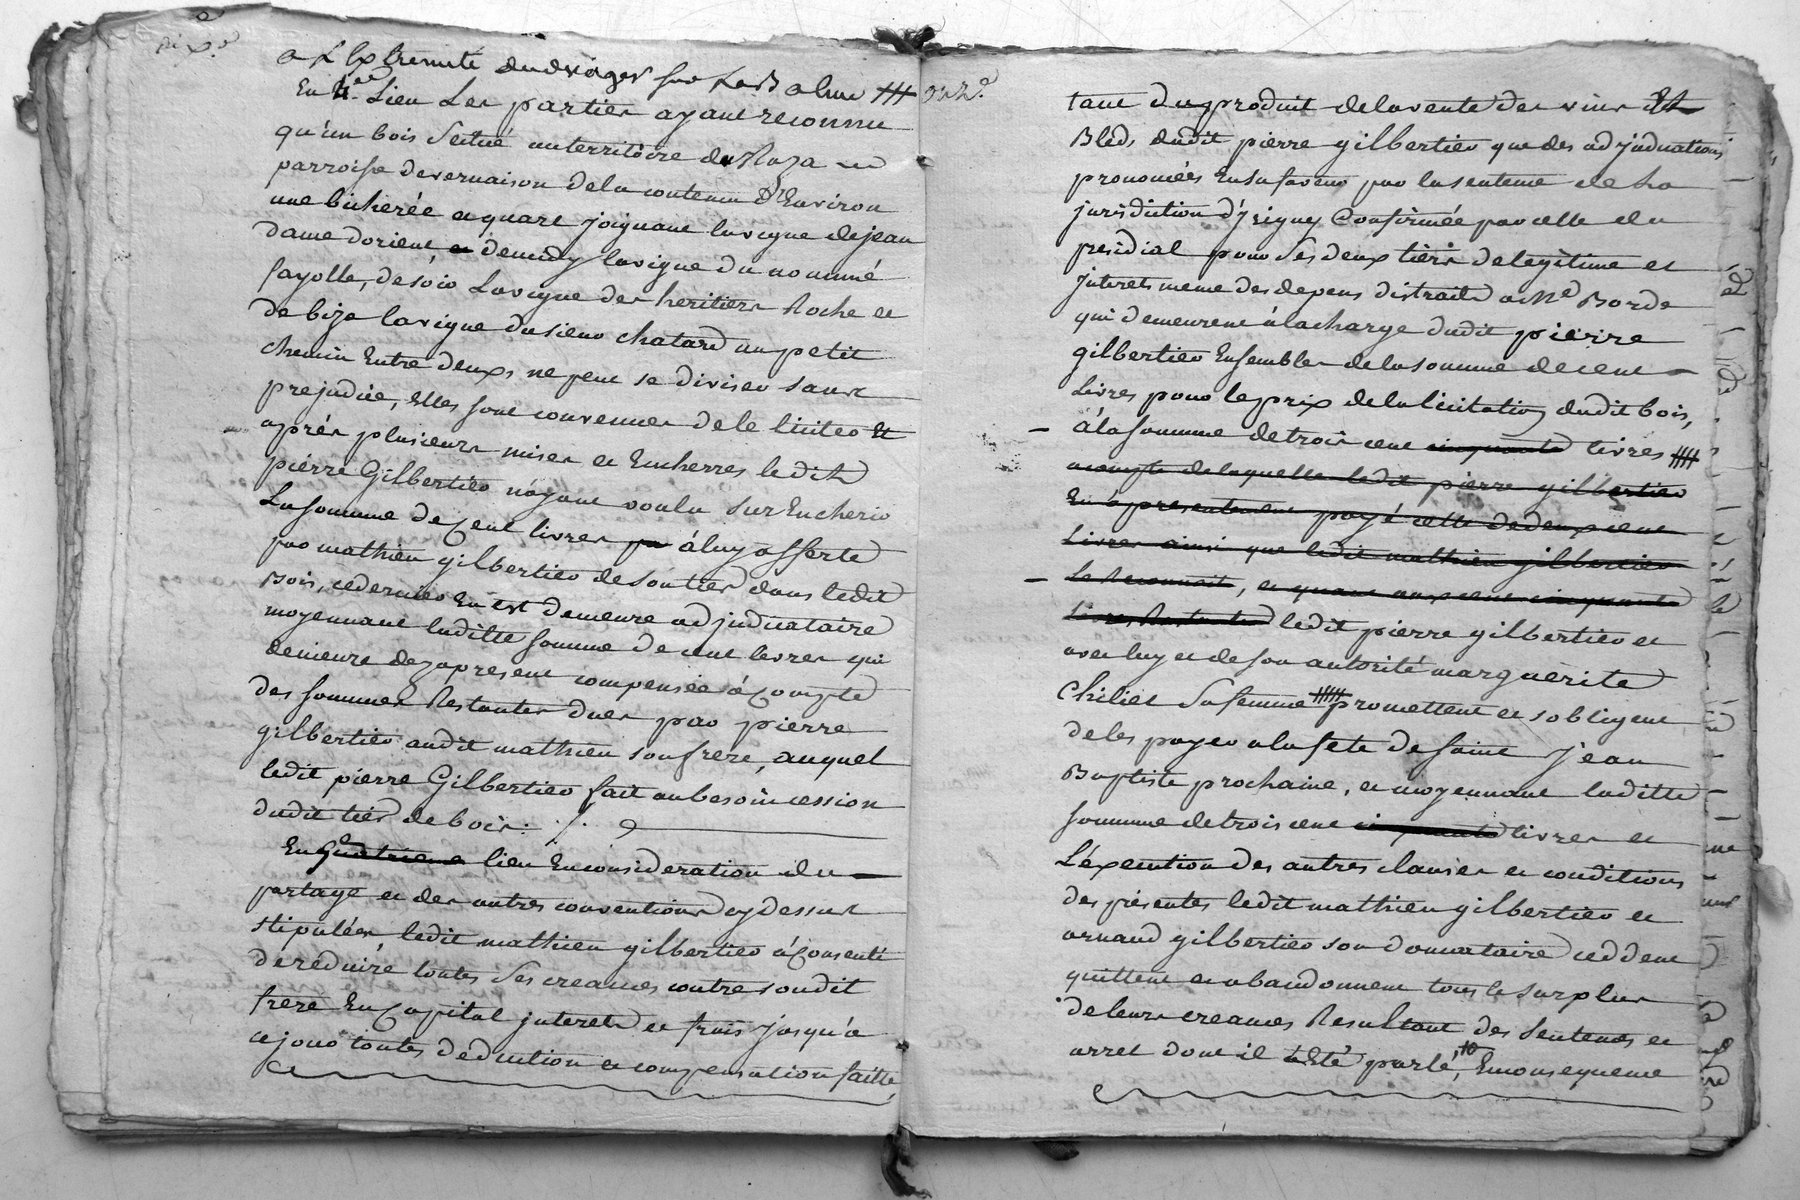 dix.e
a L Extremité du verger sur Le
En 4.e Lieu Les parties ayant reconnu
qu'un bois Scitué au territoire du
parroisse de vernaison de la contenue D'Environ
une bicherée et quart Joignant la vigne de jean
dame d'orient, de midy la vigne du nommé
fayolle, de soir La vigne des heritiers Roche et
de bize la vigne du sieur chatard un petit
chemin Entre deux, ne peut se diviser sans
prejudice, Elles sont convenues de le liciter Et
après plusieurs mises et Encherres ledit
pierre Gilbertier n'ayant voulu surEncherir
La somme de Cent livres à luy offerte
par mathieu gilbertier de son tier dans ledit
Bois, ce dernier En Est demeuré adjudicataire
moyennant laditte somme de cent livres qui
demeure dez apresent compensée à Compte
des sommes Restantes dues par pierre
gilbertier audit mathieu son frere, auquel
ledit pierre Gilbertier fait au besoin cession
dudit tier de bois.
En quatrieme lieu En consideration du
partage et des autres conventions cy dessus
stipulées ledit mathieu gilbertier a Consenti
de réduire toutes ses creances contre son dit
frere En Capital interets et frais jusqu'a
ce jour toutes déduction et compensation faitte,
onz.e
tant du produit de la vente des vins Et
Bled, dudit pierre gilbertier que des adjudications
prononcées En sa faveur par la sentence de la
jurisdiction d'yrigny Confirmée par celle du
presidial pour ses deux tiers de legitime et
Interets meme des depens distraits a M.e Borde
qui demeurent à la charge dudit pierre
gilbertier Ensembles de la somme de cent
Livres pour le prix de la licitation dudit bois,
à la somme de trois cent cinquante livres
acompte de laquelle ledit pierre gilbertier
En a presentement payé celle de deux cent
Livres ainsi que ledit mathieu gilbertier
Le Reconnoit, et quant aux cent cinquante
Livres Restantes ledit pierre gilbertier et
avec luy et de son autorité marguerite
Chiliet Sa femme promettent et s obligent
de les payer a la fete de saint Jean
Baptiste prochaine, et moyennant laditte
somme de trois cent cinquante livres et
L'éxecution des autres clauses et conditions
des présentes ledit mathieu gilbertier et
arnaud gilbertier son donnataire ceddent
quittent et abandonnent tous le surplus
de leurs creances Resultant des Sentences et
arret dont il a Eté parlé, En consequence